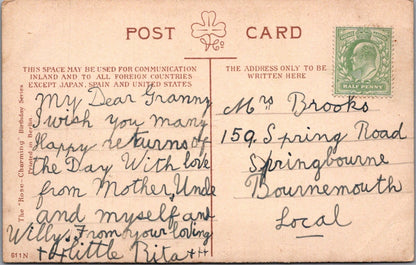 POST CARD
THIS SPACE MAY BE USED FOR COMMUNICATION
INLAND AND TO ALL FOREIGN COUNTRIES
EXCEPT JAPAN, SPAIN AND UNITED STATES
THE ADDRESS ONLY TO BE
WRITTEN HERE
My Dear Granny
I wish you many
Happy returns of
the Day With love
from Mother, Uncle
and myself and
Willy. From your loving
little Rita
Mrs Brooks
159. Spring Road
Springbourne
Bournemouth
Local
HALF PENNY
The "Rose-Charming" Birthday Series
Printed in Berlin
611N